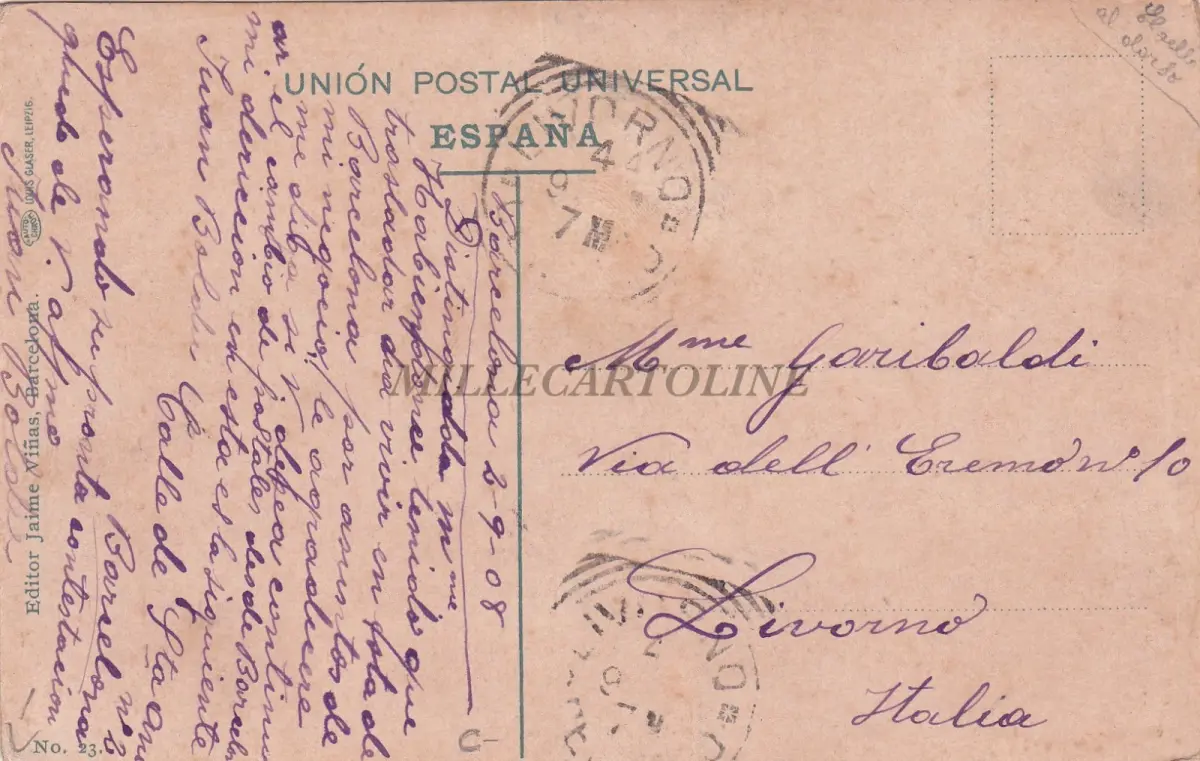 UNIÓN POSTAL UNIVERSAL
ESPAÑA
Barcelona 2-9-08
Distinguida Mme
Habiendome tenido que
trasladar dia vivir en esta de
Barcelona por asuntos de
mi negocio, le agradecere
me diba si V. desea continu
ar el cambio de postales desde Barcelo
mi dericcion en esta es la siguiente
Juan
Calle de Sta Ana
nº 2
Barcelona
Esperando su pronta contestacion
quedo de V. afmo
Juan
Mme Garibaldi
Via dell' Eremo nº 10
Livorno
Italia
LIVORNO
4
9
7 M
MILLECARTOLINE
al dorso
Editor Jaime Viñas, Barcelona.
LOUIS GLASER, LEIPZIG.
No. 23.